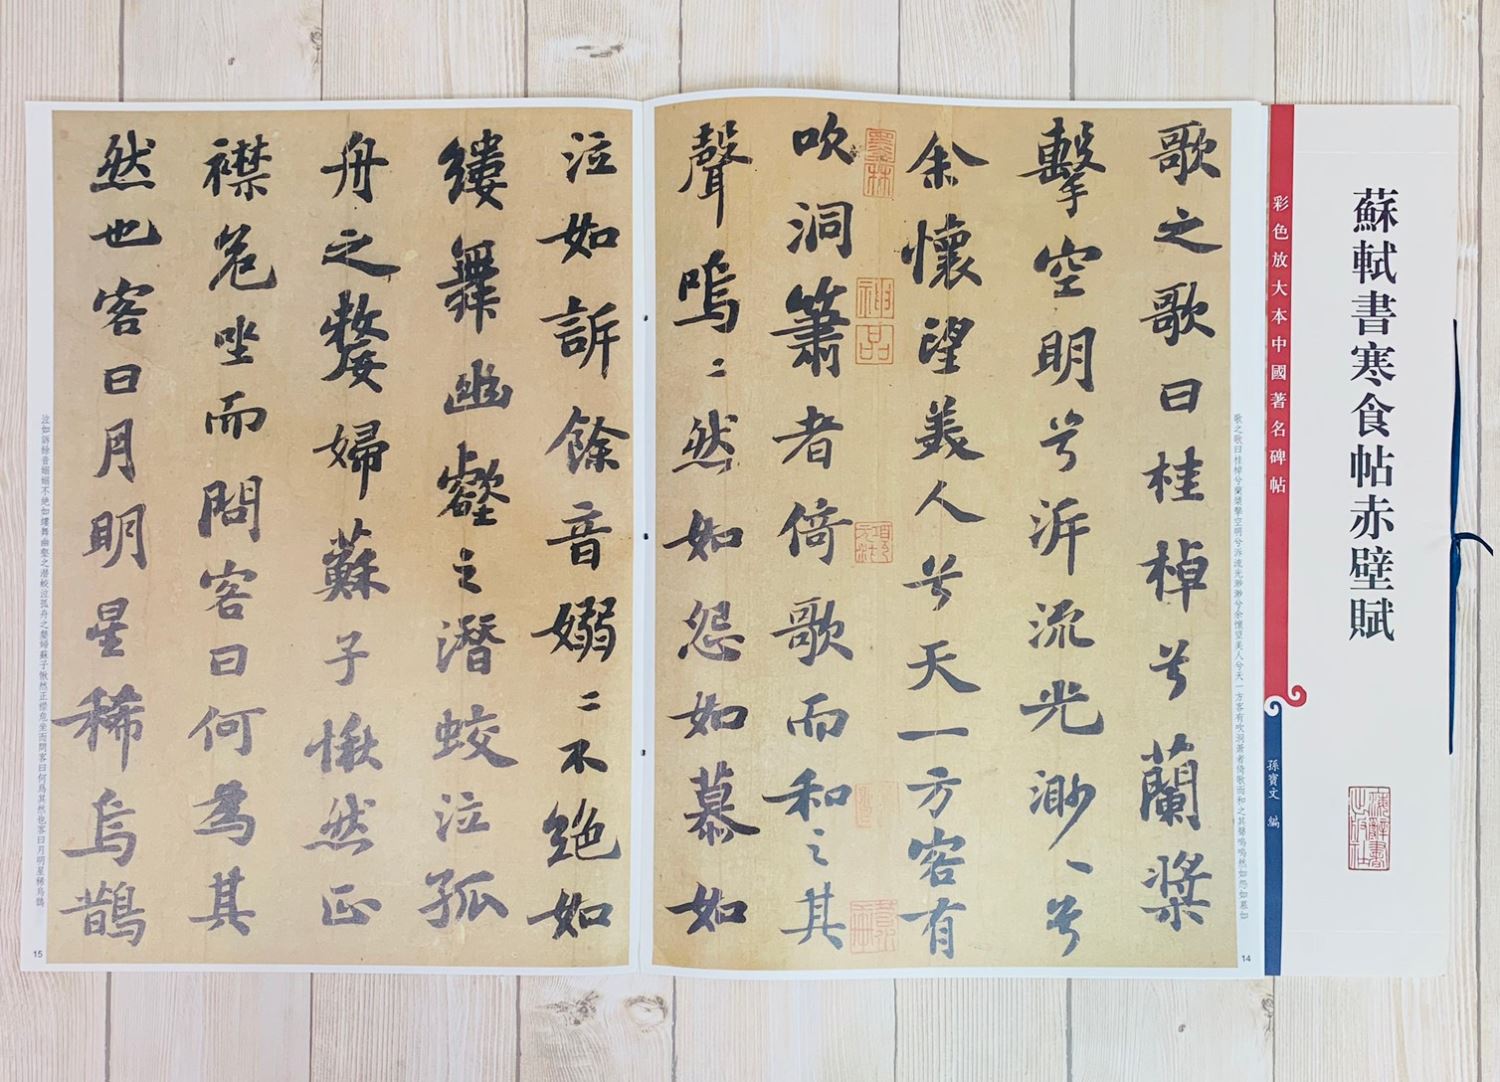 蘇軾書寒食帖赤壁賦
上海辭書出版社
彩色放大本中國著名碑帖
孫寶文 編
歌之歌曰桂棹兮蘭槳擊空明兮泝流光渺渺兮余懷望美人兮天一方客有吹洞簫者倚歌而和之其聲嗚嗚然如怨如慕如
14
歌之歌曰桂棹兮蘭槳
擊空明兮泝流光渺〻兮
余懷望美人兮天一方客有
墨林
神品
吹洞簫者倚歌而和之其
聲嗚〻然如怨如慕如
泣如訴餘音嫋〻不絕如
縷舞幽壑之潛蛟泣孤
舟之嫠婦蘇子愀然正
襟危坐而問客曰何為其
然也客曰月明星稀烏鵲
泣如訴餘音嫋嫋不絕如縷舞幽壑之潛蛟泣孤舟之嫠婦蘇子愀然正襟危坐而問客曰何爲其然也客曰月明星稀烏鵲
15